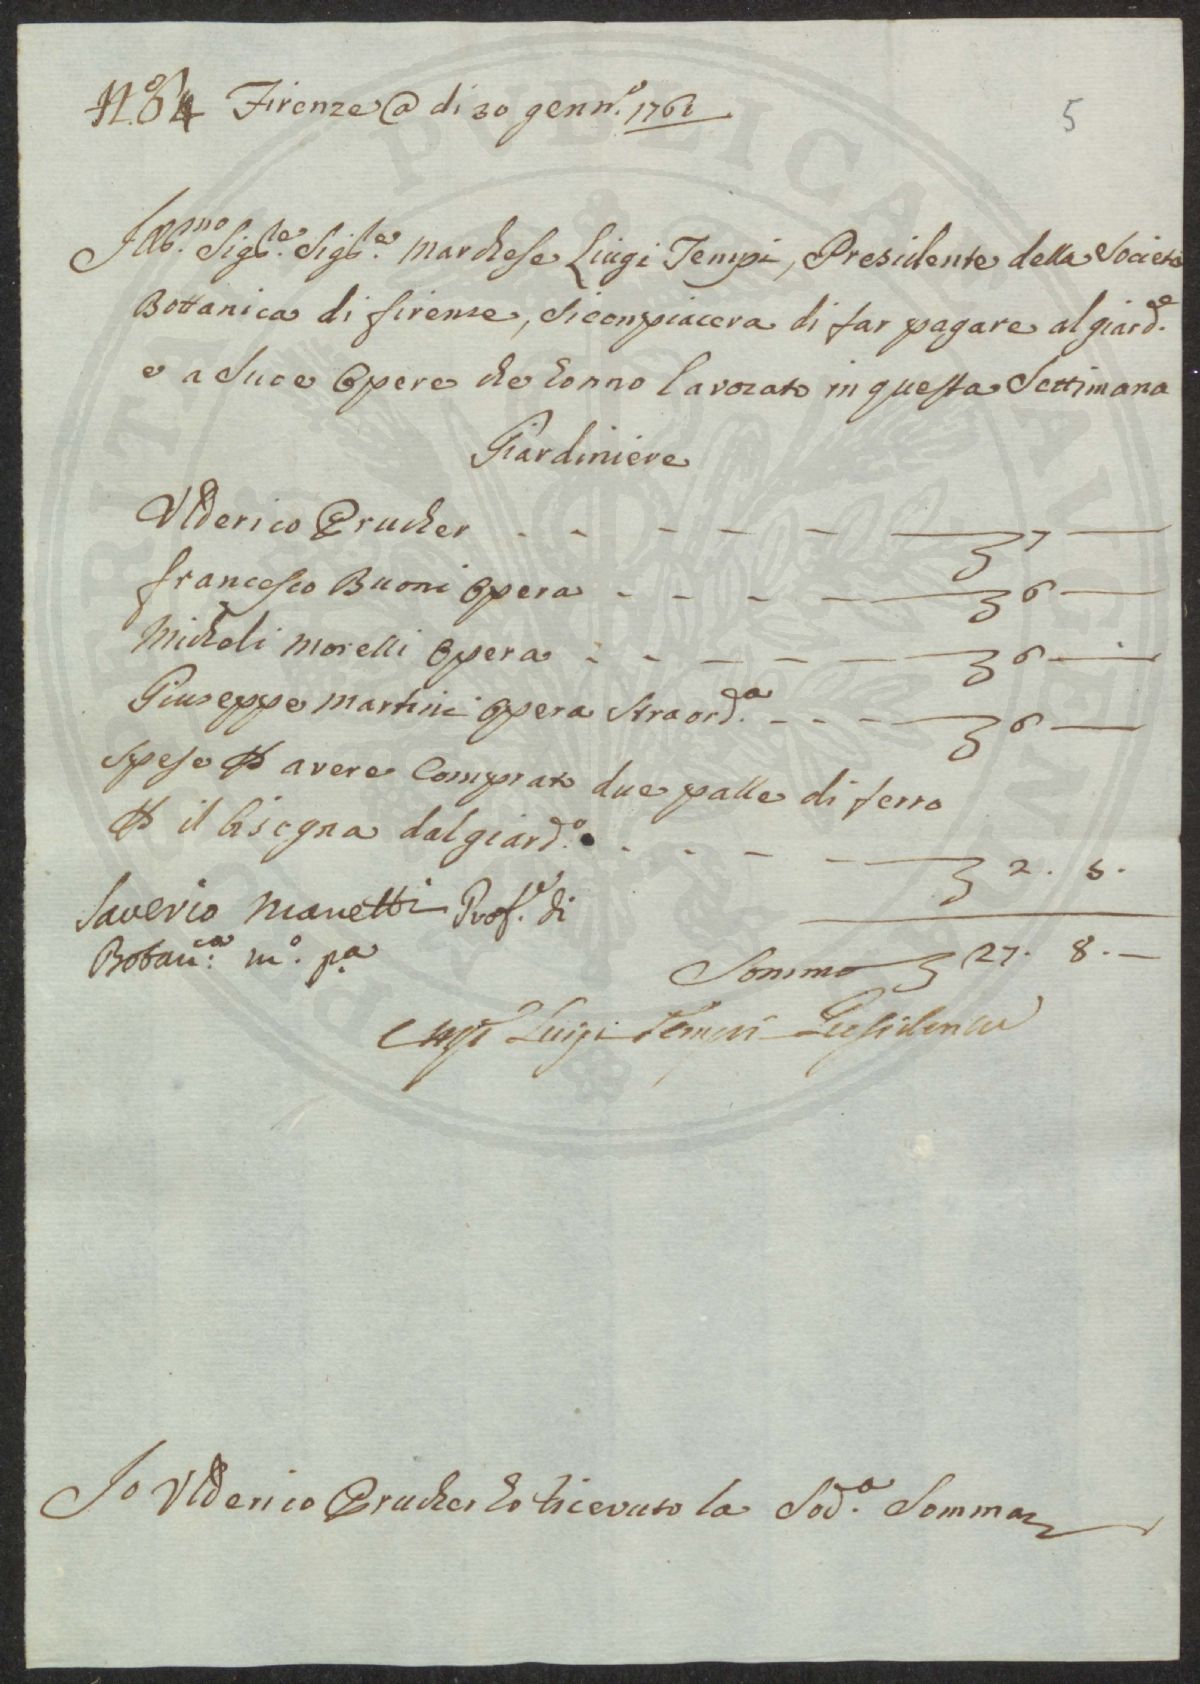 N.º 4 Firenze @ di 30 genn.º 1761
5
Ill.mo Sig.re Sig.re Marchese Luigi Tempi, Presidente della Societa
Bottanica di firense, si conpiacera di far pagare al giard.e
e a Suoe Opere che honno lavorato in questa Settimana
Giardiniere
Ulderico Prucher - - - - - 7 —
francesco Buoni Opera - - - - 6 —
Micheli Morelli Opera - - - - 6 —
Giuseppe Martini Opera straord.a - - - 6 —
Spese per avere Comprato due palle di ferro
per il bisogna dal giard.o - - - - 2. 8.
Saverio Manetti Prof.e di
Botan.ca m.o p.a
Somma 27. 8. —
Luigi Tempi Presidente
Io Ulderico Prucher ho ricevuto la Sod.a Somma
PUBLICAE